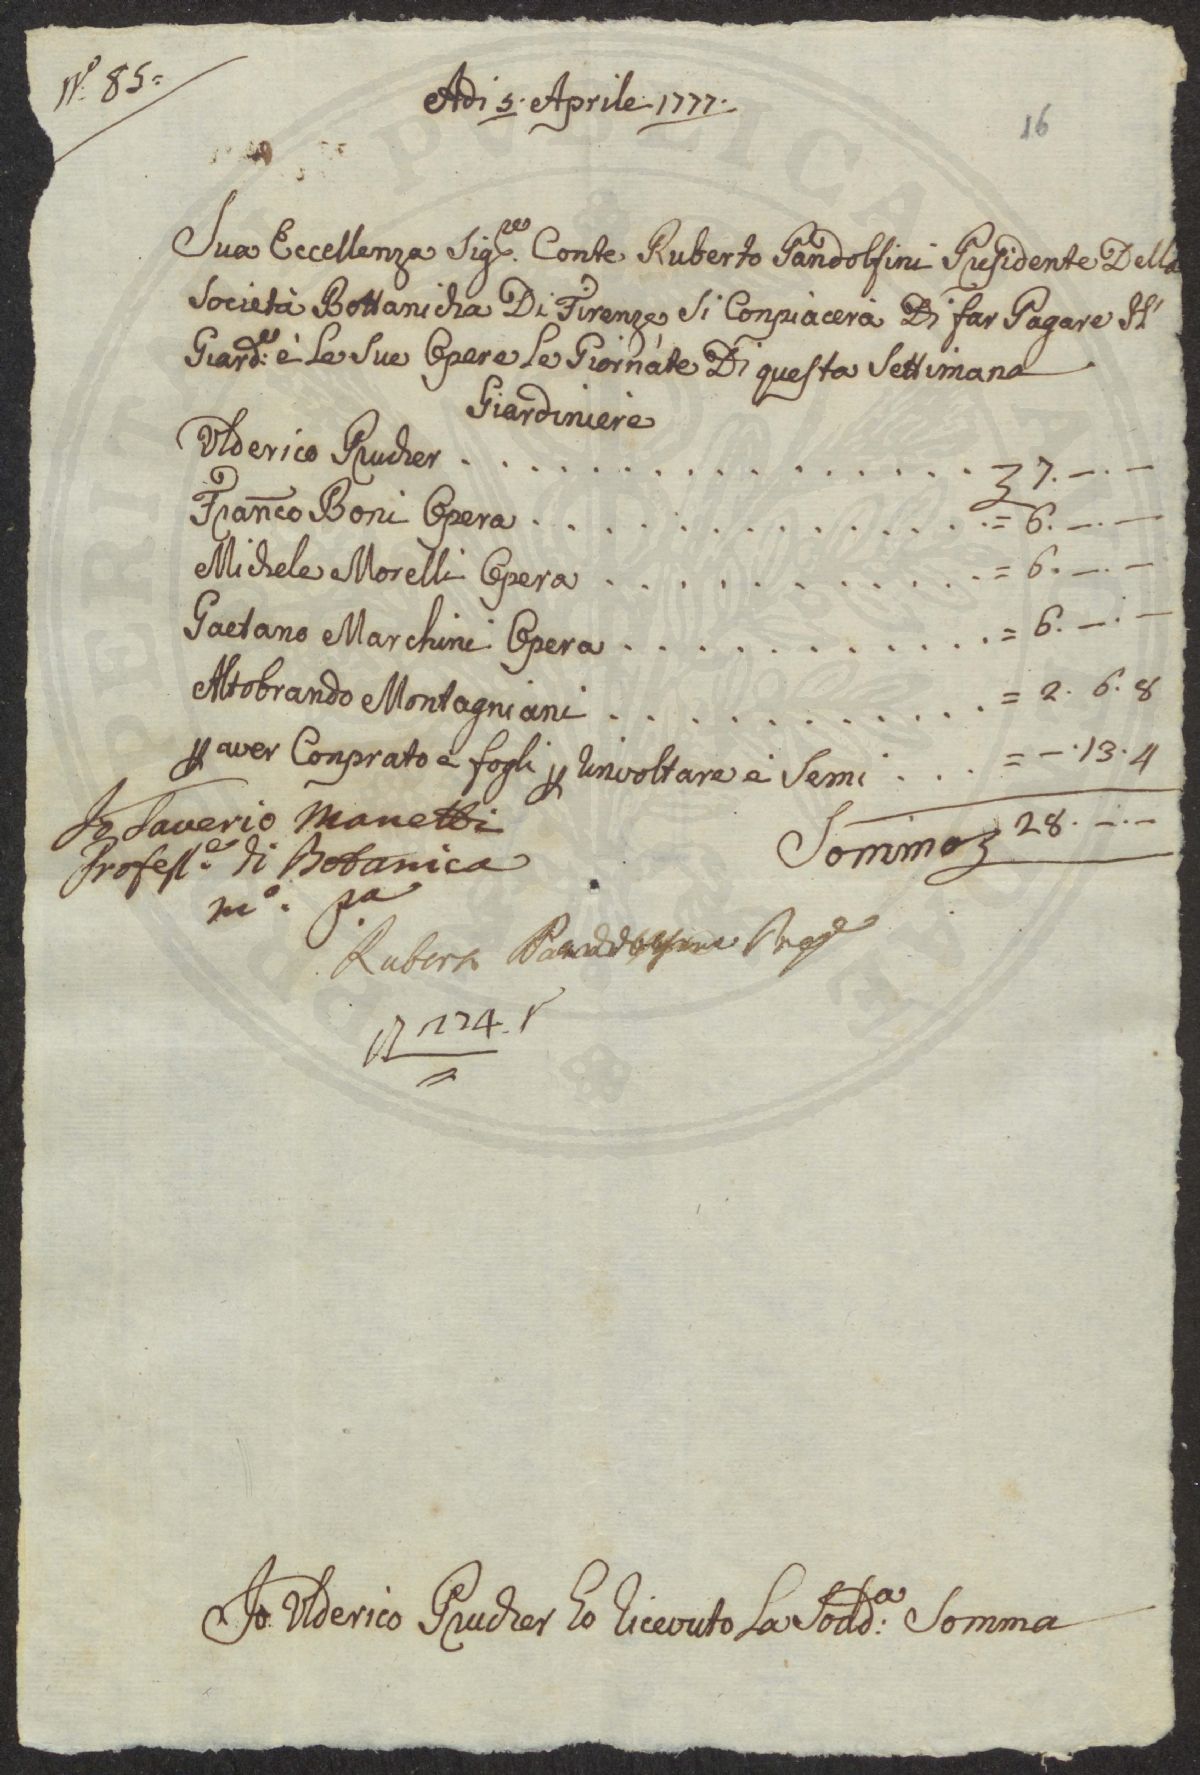 N.o 85=
Adi 5. Aprile 1777.
16
Sua Eccellenza Sig.re Conte Ruberto Pandolfini Presidente Della
Società Bottanicha Di Firenze Si Conpiacerà Di far Pagare Il
Giard.e è Le Sue Opere Le Giornate Di questa Settimana
Giardiniere
Ulderico Prucher . . . . . . . . . . . . . . . 7. —. —
Franco Boni Opera . . . . . . . . . . . . . = 6. —. —
Michele Morelli Opera . . . . . . . . . . . = 6. —. —
Gaetano Marchini Opera . . . . . . . . . . . = 6. —. —
Altobrando Montagniani . . . . . . . . . . . = 2. 6. 8
p aver Conprato e fogli p Uinvoltare e Semi . . . = —. 13. 4
Somma 28. —. —
Io Saverio Manetti
Profess.e di Botanica
m.o p.a
Ruberto Pandolfini
224.
Io Ulderico Prucher ho ricevuto La Sodd.a Somma